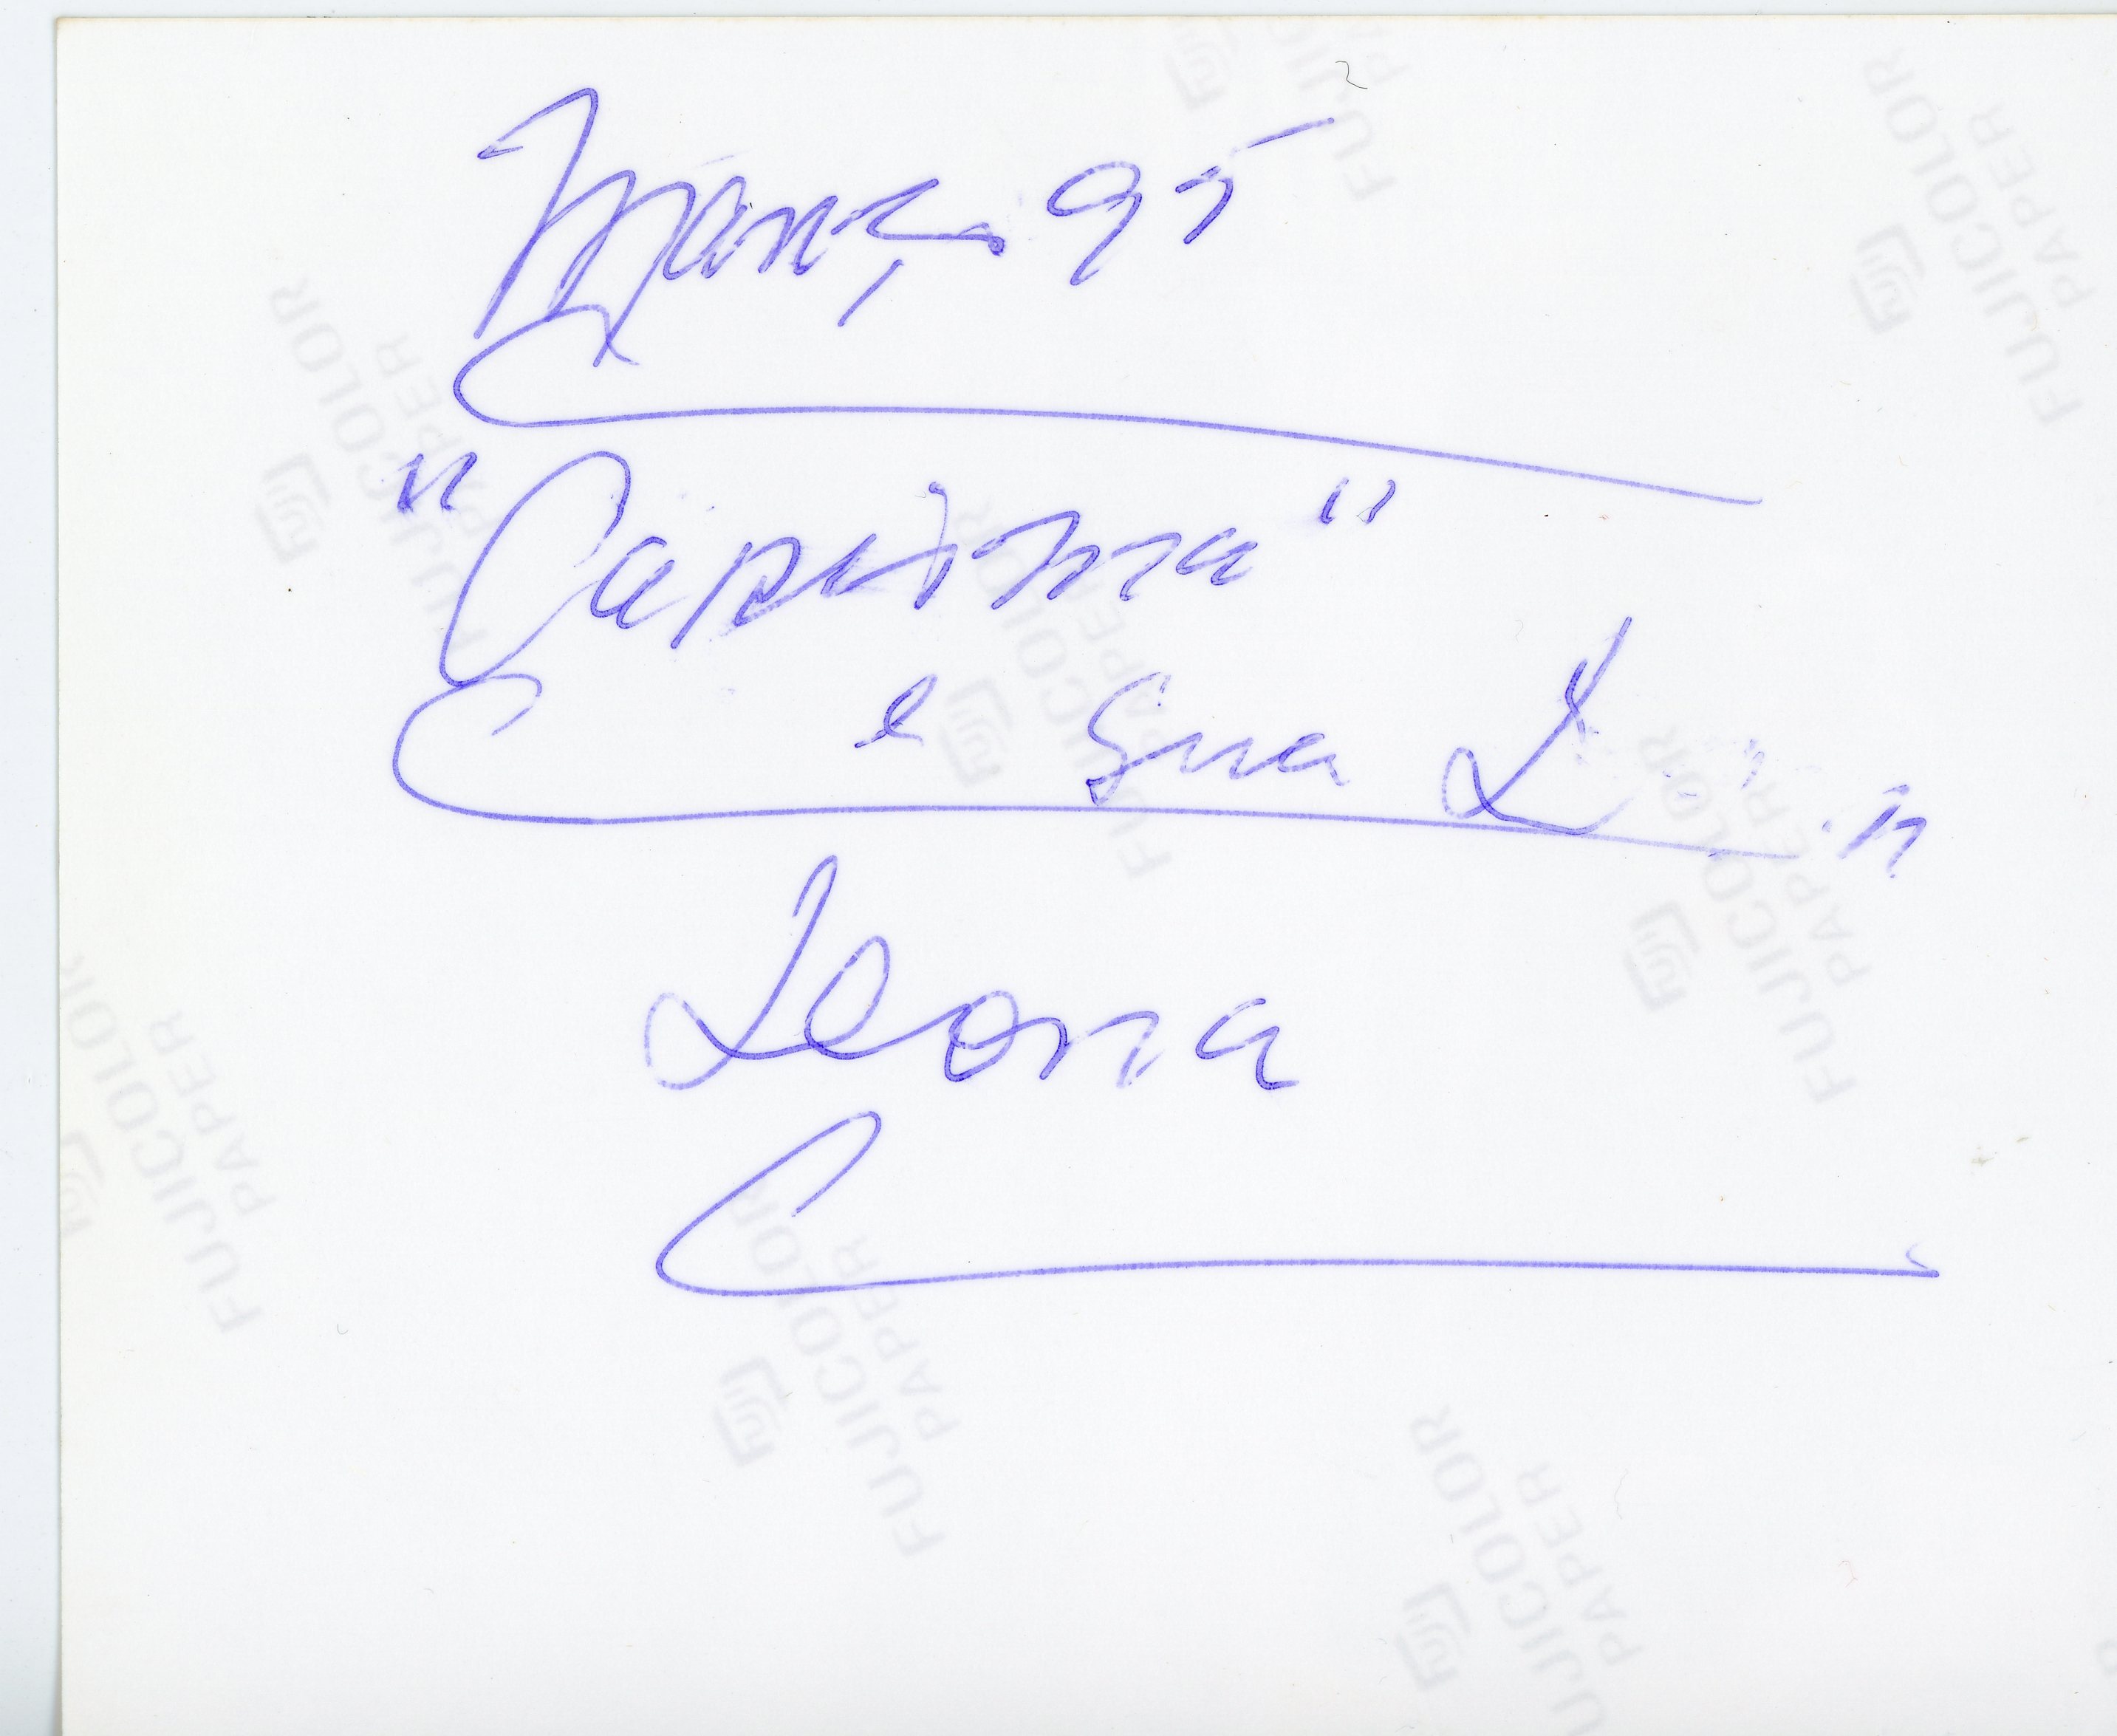 Março 95
"Capitma"
e Sua L
Leona
FUJICOLOR
PAPER
FUJICOLOR
PAPER
FUJICOLOR
PAPER
FUJICOLOR
PAPER
FUJICOLOR
PAPER
FUJICOLOR
PAPER
FUJICOLOR
PAPER
FUJICOLOR
PAPER